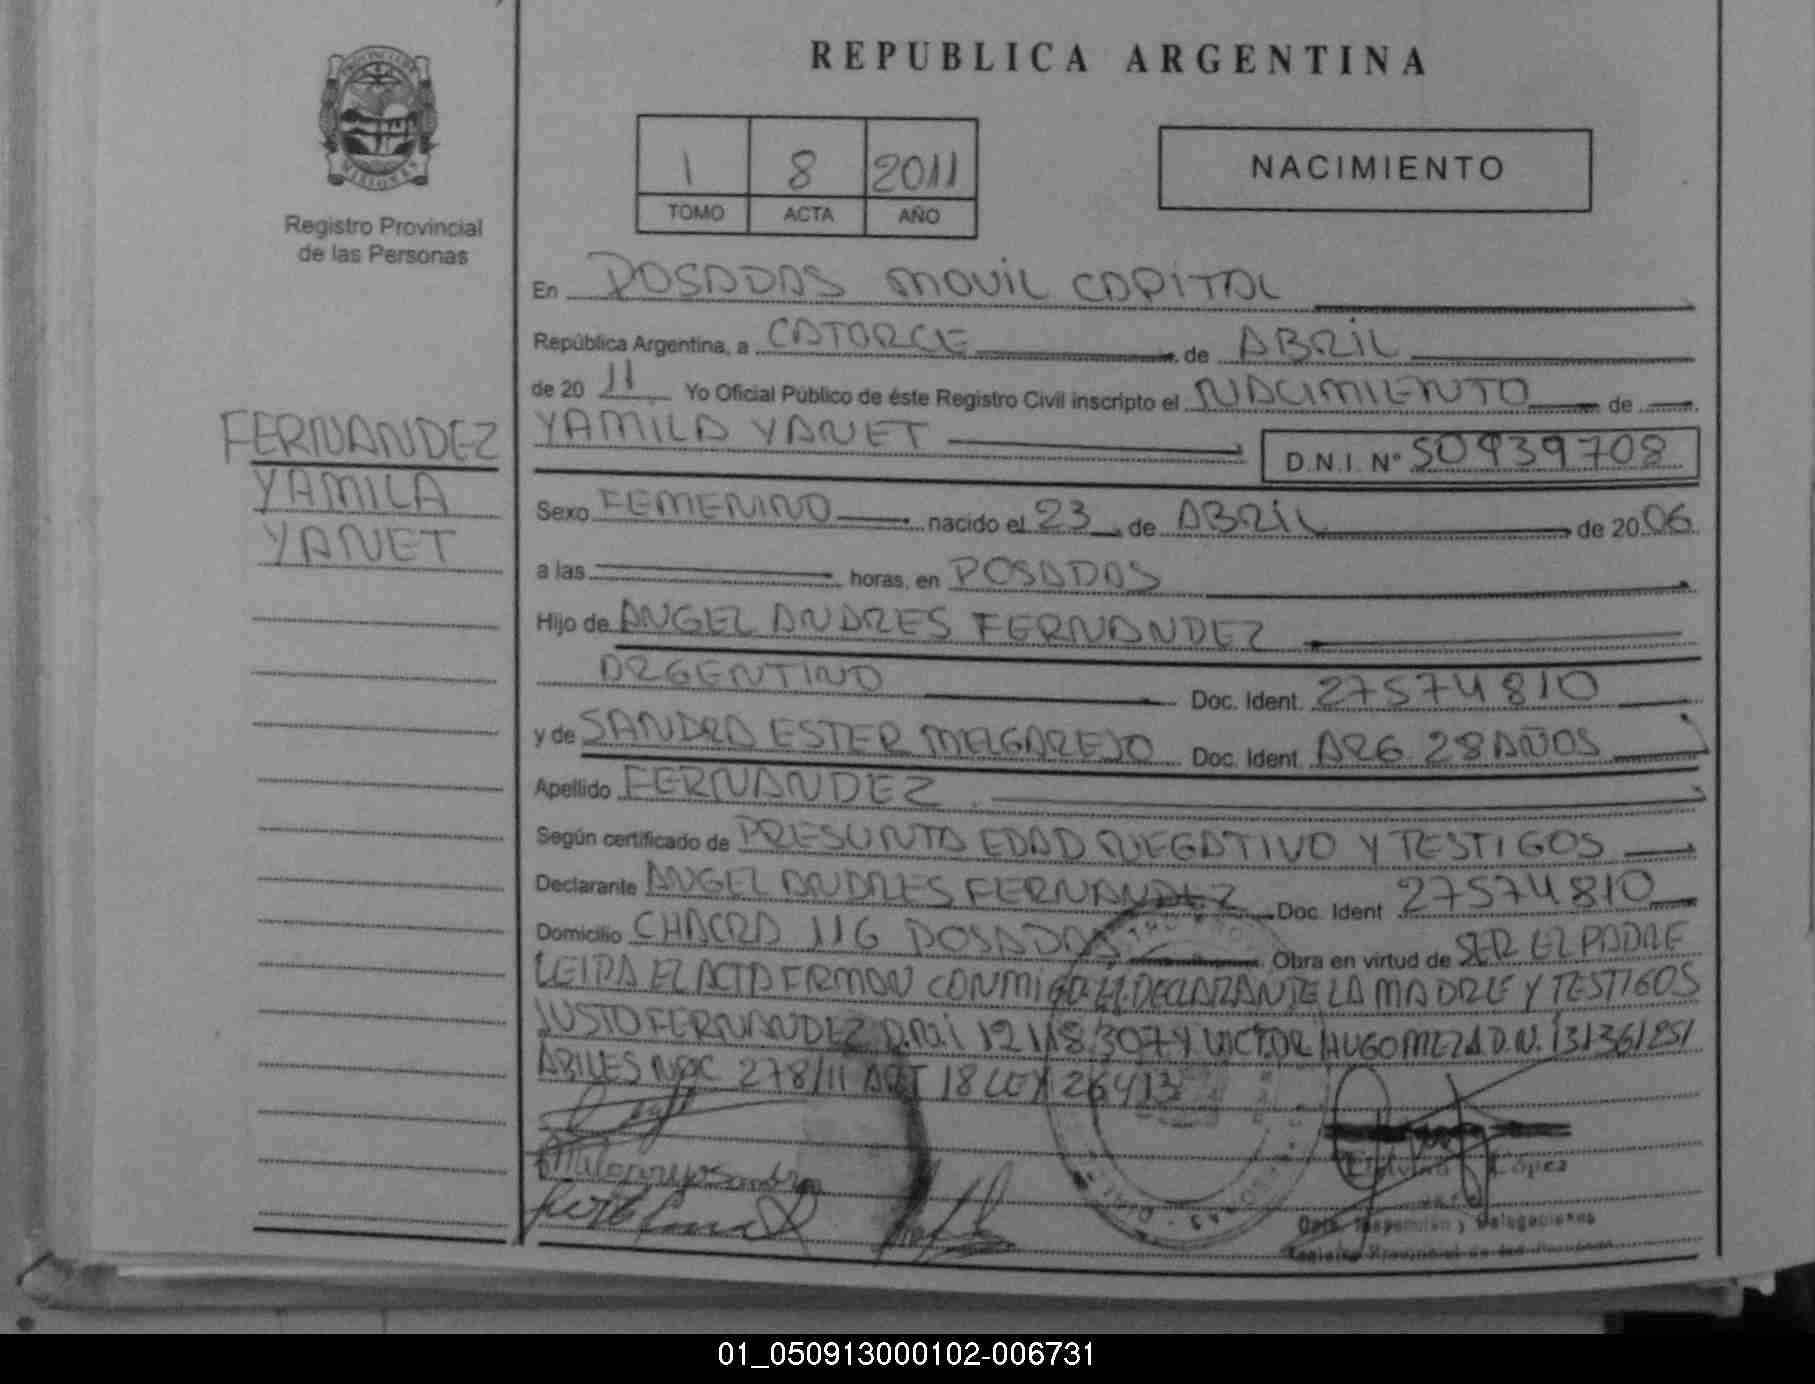 REPUBLICA ARGENTINA
PROVINCIA DE MISIONES
Registro Provincial
de las Personas
1 8 2011
TOMO ACTA AÑO
NACIMIENTO
FERNANDEZ
YAMILA
YANET
En POSADAS MOVIL CAPITAL
República Argentina, a CATORCE de ABRIL
de 20 11 Yo Oficial Público de éste Registro Civil inscripto el NACIMIENTO de
YAMILA YANET D.N.I. Nº 50939708
Sexo FEMENINO nacido el 23 de ABRIL de 20 06
a las horas, en POSADAS
Hijo de ANGEL ANDRES FERNANDEZ
ARGENTINO Doc. Ident. 27574810
y de SANDRA ESTER MELGAREJO Doc. Ident ARG. 28 AÑOS
Apellido FERNANDEZ
Según certificado de PRESUNTA EDAD NEGATIVO Y TESTIGOS
Declarante ANGEL ANDRES FERNANDEZ Doc. Ident 27574810
Domicilio CHACRA 116 POSADAS Obra en virtud de SER EL PADRE
LEIDA EL ACTA FIRMAN CONMIGO EL DECLARANTE LA MADRE Y TESTIGOS
JUSTO FERNANDEZ D.N.I 12118307 Y VICTOR HUGO MEZA D.N. 131361251
278/11 ART 18 LEY 26413
Melgarejo Sandra
López
Dpto. Inspección y Delegaciones
Registro Provincial de las Personas
01_050913000102-006731